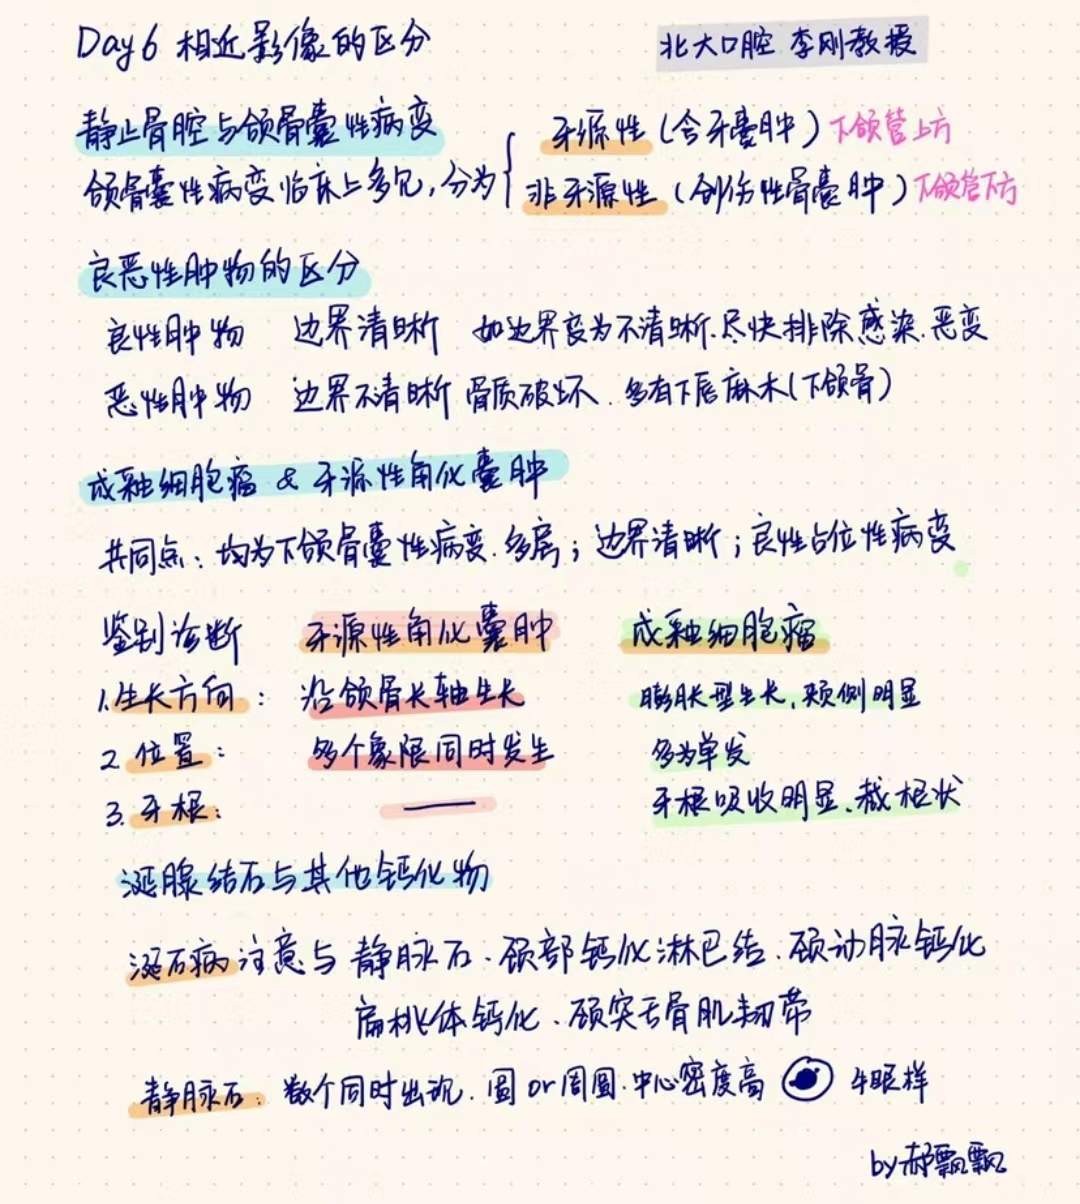 Day6 相近影像的区分
北大口腔 李刚教授
静止骨腔与颌骨囊性病变
颌骨囊性病变临床上多见,分为
牙源性(含牙囊肿)下颌管上方
非牙源性(创伤性骨囊肿)下颌管下方
良恶性肿物的区分
良性肿物 边界清晰 如边界变为不清晰.尽快排除感染.恶变
恶性肿物 边界不清晰 骨质破坏.多有下唇麻木(下颌骨)
成釉细胞瘤 & 牙源性角化囊肿
共同点:均为下颌骨囊性病变.多房;边界清晰;良性占位性病变
鉴别诊断 牙源性角化囊肿 成釉细胞瘤
1.生长方向: 沿颌骨长轴生长 膨胀型生长,颊侧明显
2.位置: 多个象限同时发生 多为单发
3.牙根: —— 牙根吸收明显.截根状
涎腺结石与其他钙化物
涎石病 注意与 静脉石.颈部钙化淋巴结.颈动脉钙化
扁桃体钙化.颈突舌骨肌韧带
静脉石:数个同时出现.圆or周圆.中心密度高 牛眼样
by郝飘飘